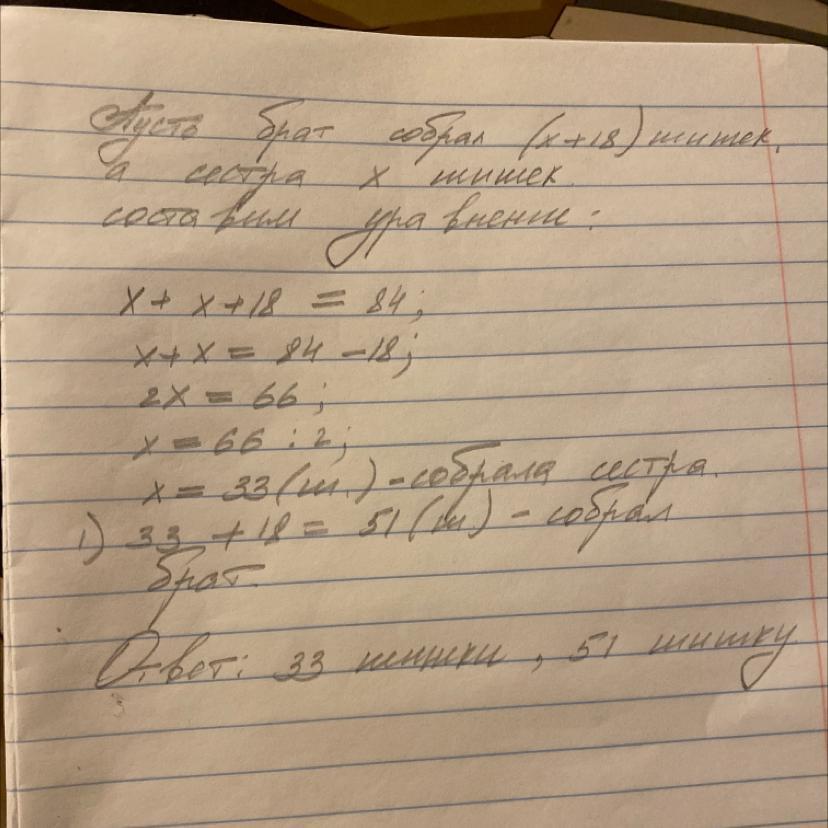 Пусть брат собрал (x+18) шишек,
а сестра x шишек.
составим уравнение:
x + x + 18 = 84;
x + x = 84 - 18;
2x = 66;
x = 66 : 2;
x = 33 (ш.) - собрала сестра.
1) 33 + 18 = 51 (ш.) - собрал
брат.
Ответ: 33 шишки, 51 шишку